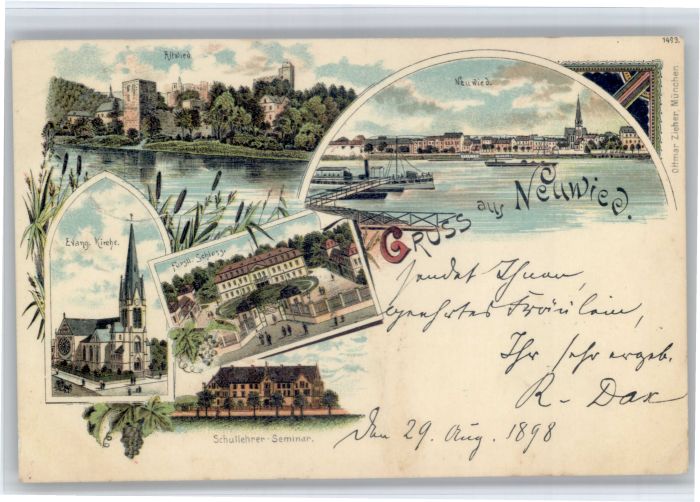 1493.
Altwied
Neuwied.
Ottmar Zieher, München
Evang. Kirche.
Fürstl. Schloss.
Gruss aus Neuwied.
sendet Ihnen,
geehrtes Fräulein,
Ihr sehr ergeb.
R. Dax
Schullehrer-Seminar.
Den 29. Aug. 1898